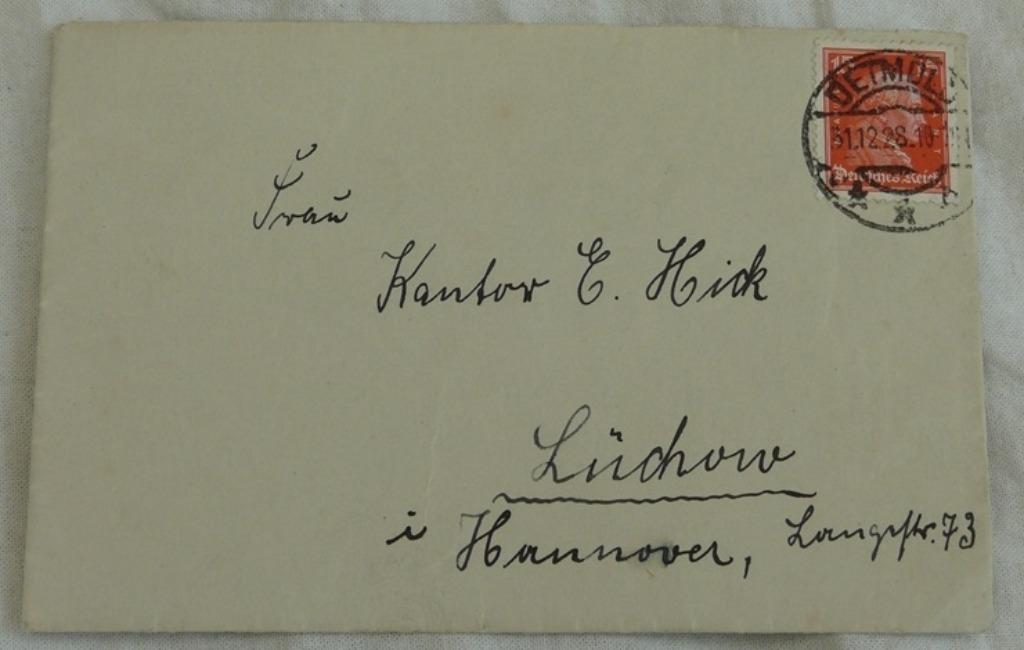 15 15
DETMOLD
31.12.28.10-11
Deutsches Reich
Frau
Kantor E. Hick
Lüchow
i Hannover, Langestr. 73